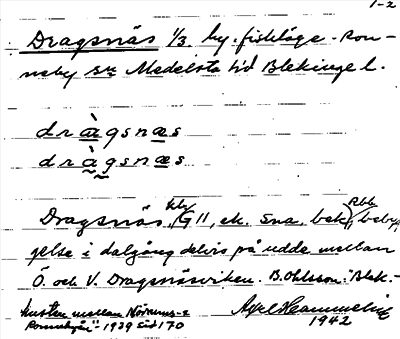 1-2
Dragsnäs 1/3. by. fiskläge. Ron-
neby sn Medelsta hd Blekinge l.
dràgsnæs
dràgsnæs
Dragsnäs, G 11, ek. Sna. bek, beby
gelse i dalgång delvis på udde mellan
Ö. och V. Dragsnäsviken. B. Ohlsson: "Blek.-
kusten mellan
Ronnebyån"- 1939 sid 170
1942